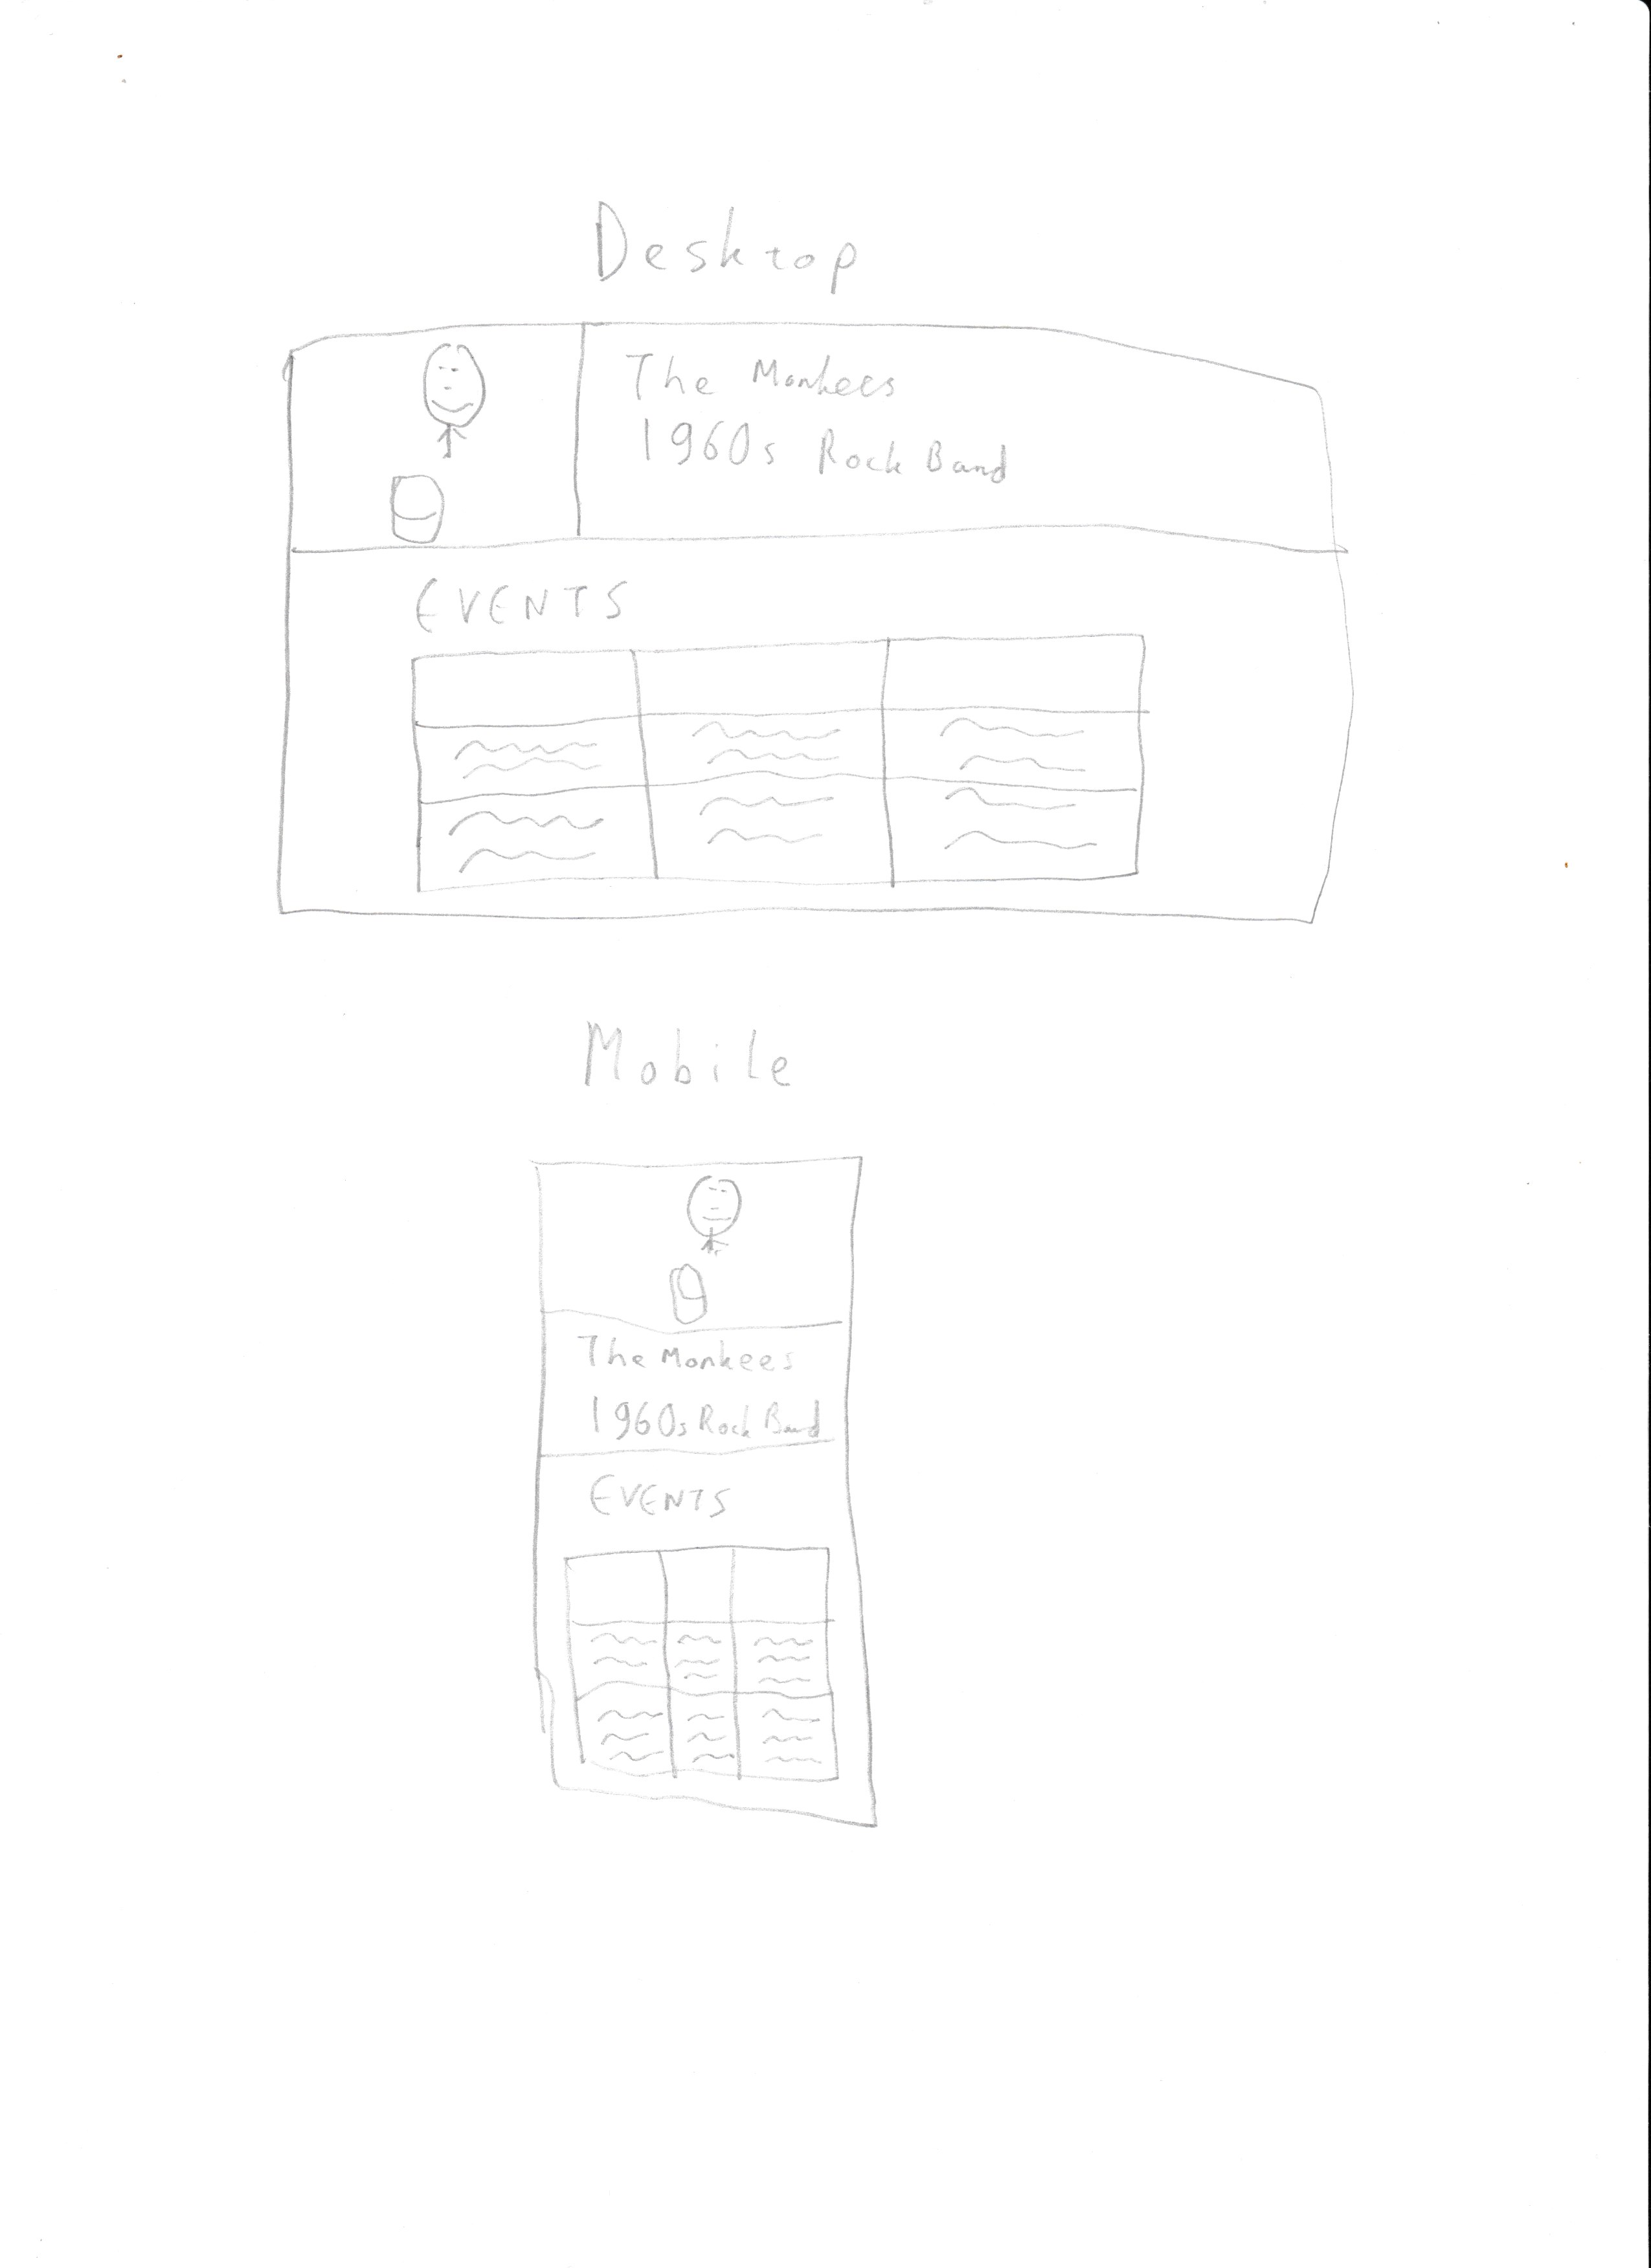 Desktop
The Monkees
1960s Rock Band
EVENTS
Mobile
The Monkees
1960s Rock Band
EVENTS